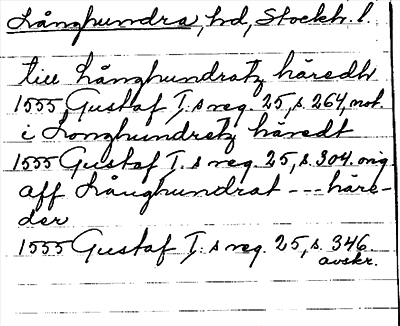 Långhundra, hd, Stockh. l.
till Långhundratz häredh
1555 Gustaf I:s reg. 25, s. 264, not.
i Longhundretz häredt
1555 Gustaf I:s reg. 25, s. 304. orig.
aff Långhundrat --- häre-
der
1555 Gustaf I:s reg. 25, s. 346
avskr.